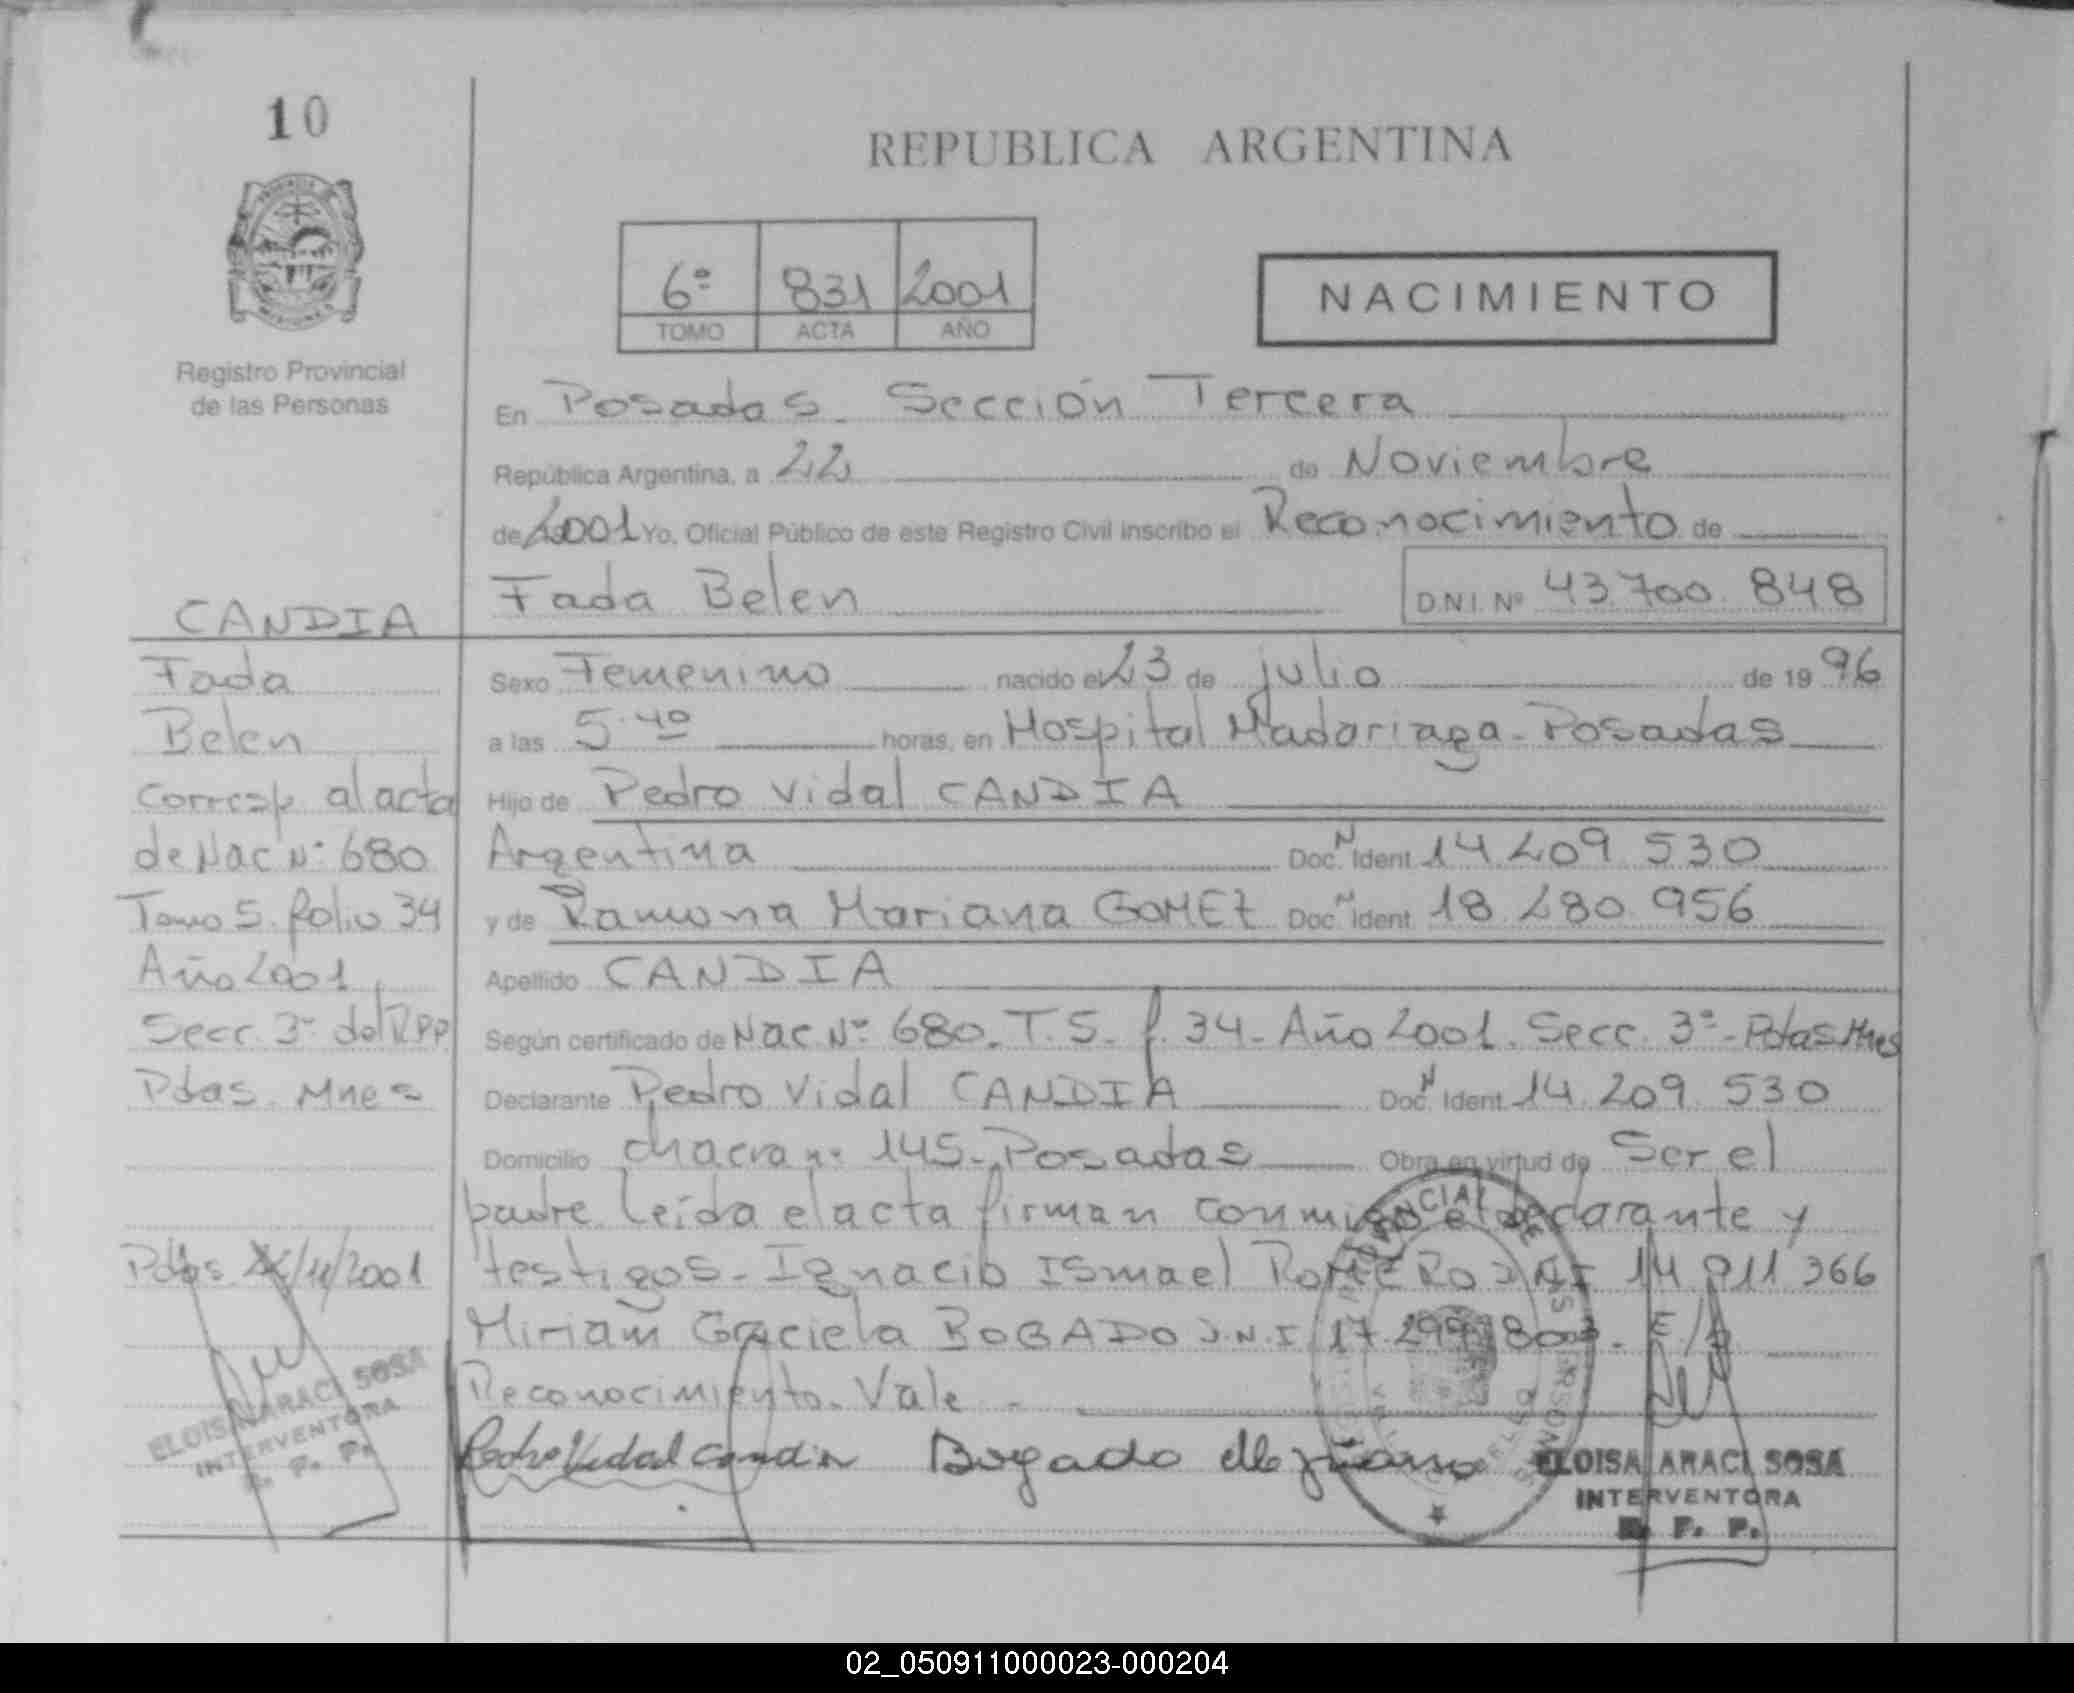 10
REPUBLICA ARGENTINA
6º 831 2001
TOMO ACTA AÑO
NACIMIENTO
Registro Provincial
de las Personas
En Posadas. Sección Tercera
República Argentina, a 22 de Noviembre
de 2001 Yo, Oficial Público de este Registro Civil inscribo el Reconocimiento de
Fada Belen D.N.I. Nº 43.700.848
CANDIA
Fada
Belen
Corresp al acta
de Nac Nº 680
Tomo 5. folio 34
Año 2001
Secc. 3º del RPP
Pdas. Mnes
Sexo Femenino nacido el 23 de julio de 1996
a las 5.40 horas, en Hospital Madariaga - Posadas
Hijo de Pedro Vidal CANDIA
Argentina Doc. N Ident. 14.209.530
y de Ramona Mariana GOMEZ Doc. N Ident. 18.280.956
Apellido CANDIA
Según certificado de Nac Nº 680. T. 5. f. 34 - Año 2001. Secc. 3º - Pdas Mnes
Declarante Pedro Vidal CANDIA Doc. N Ident. 14.209.530
Domicilio chacra nº 145 - Posadas Obra en virtud de Ser el
padre. Leída el acta firman conmigo el declarante y
testigos - Ignacio Ismael ROMERO DNI 14.911 366
Miriam Graciela BOGADO D.N.I 17.299.803. E/
Reconocimiento. Vale -
Pdas /11/2001
ELOISA ARACI SOSA
INTERVENTORA
R. P. P.
Pedro Vidal Candia Bogado
ELOISA ARACI SOSA
INTERVENTORA
R. P. P.
02_050911000023-000204